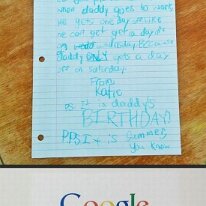 when daddy goes to work
he gets one day off
he can't get a day off
on Wednesday. Because
daddy ONLY gets a day
off on Saturday.
From
Katie
PS It is daddy's
BIRTHDAY
PPS It is summer,
you know
Google